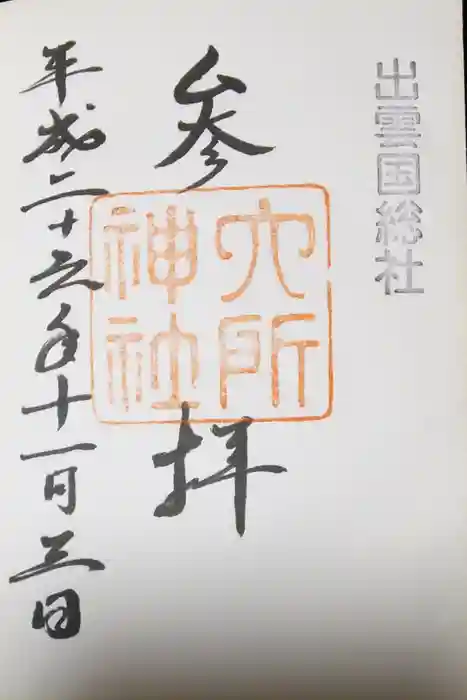 出雲国総社
参拝
六所
神社
平成二十六年十一月三日